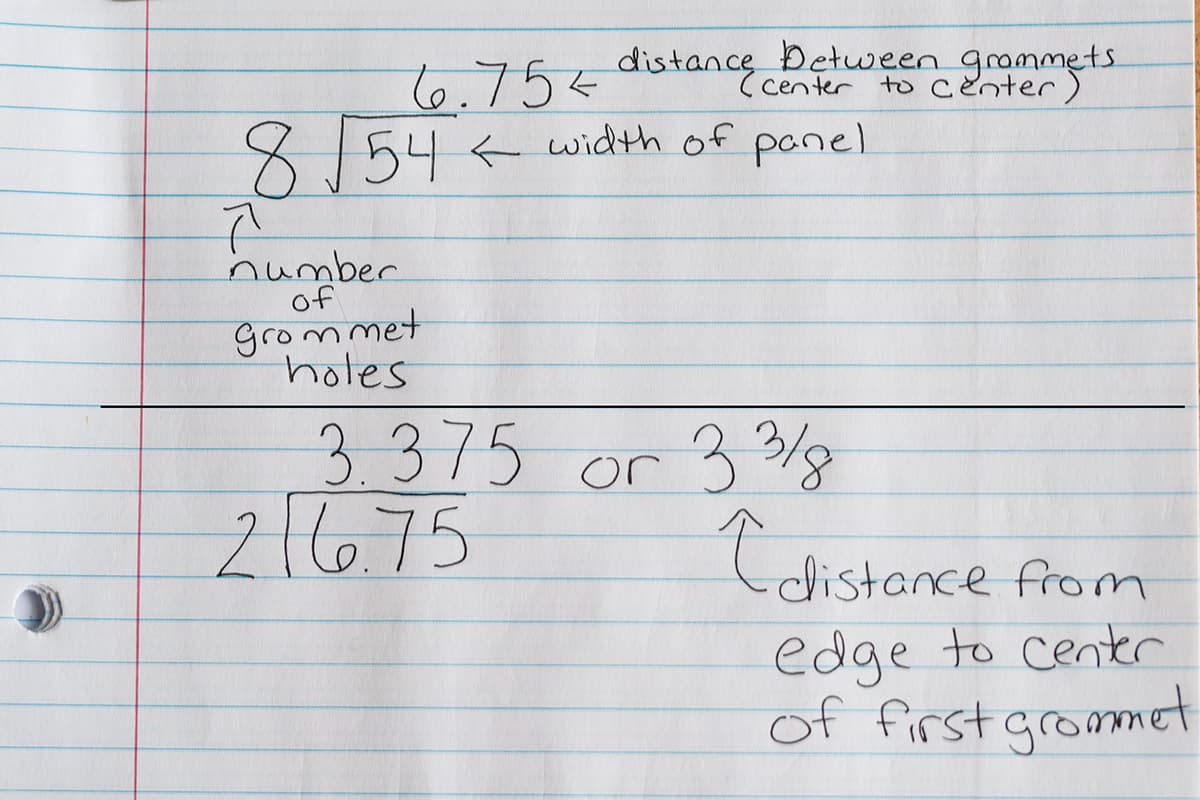 6.75 ← distance between grommets
(center to center)
8√54 ← width of panel
↑
number
of
grommet
holes
3.375 or 3 3/8
2√6.75
↑ distance from
edge to center
of first grommet